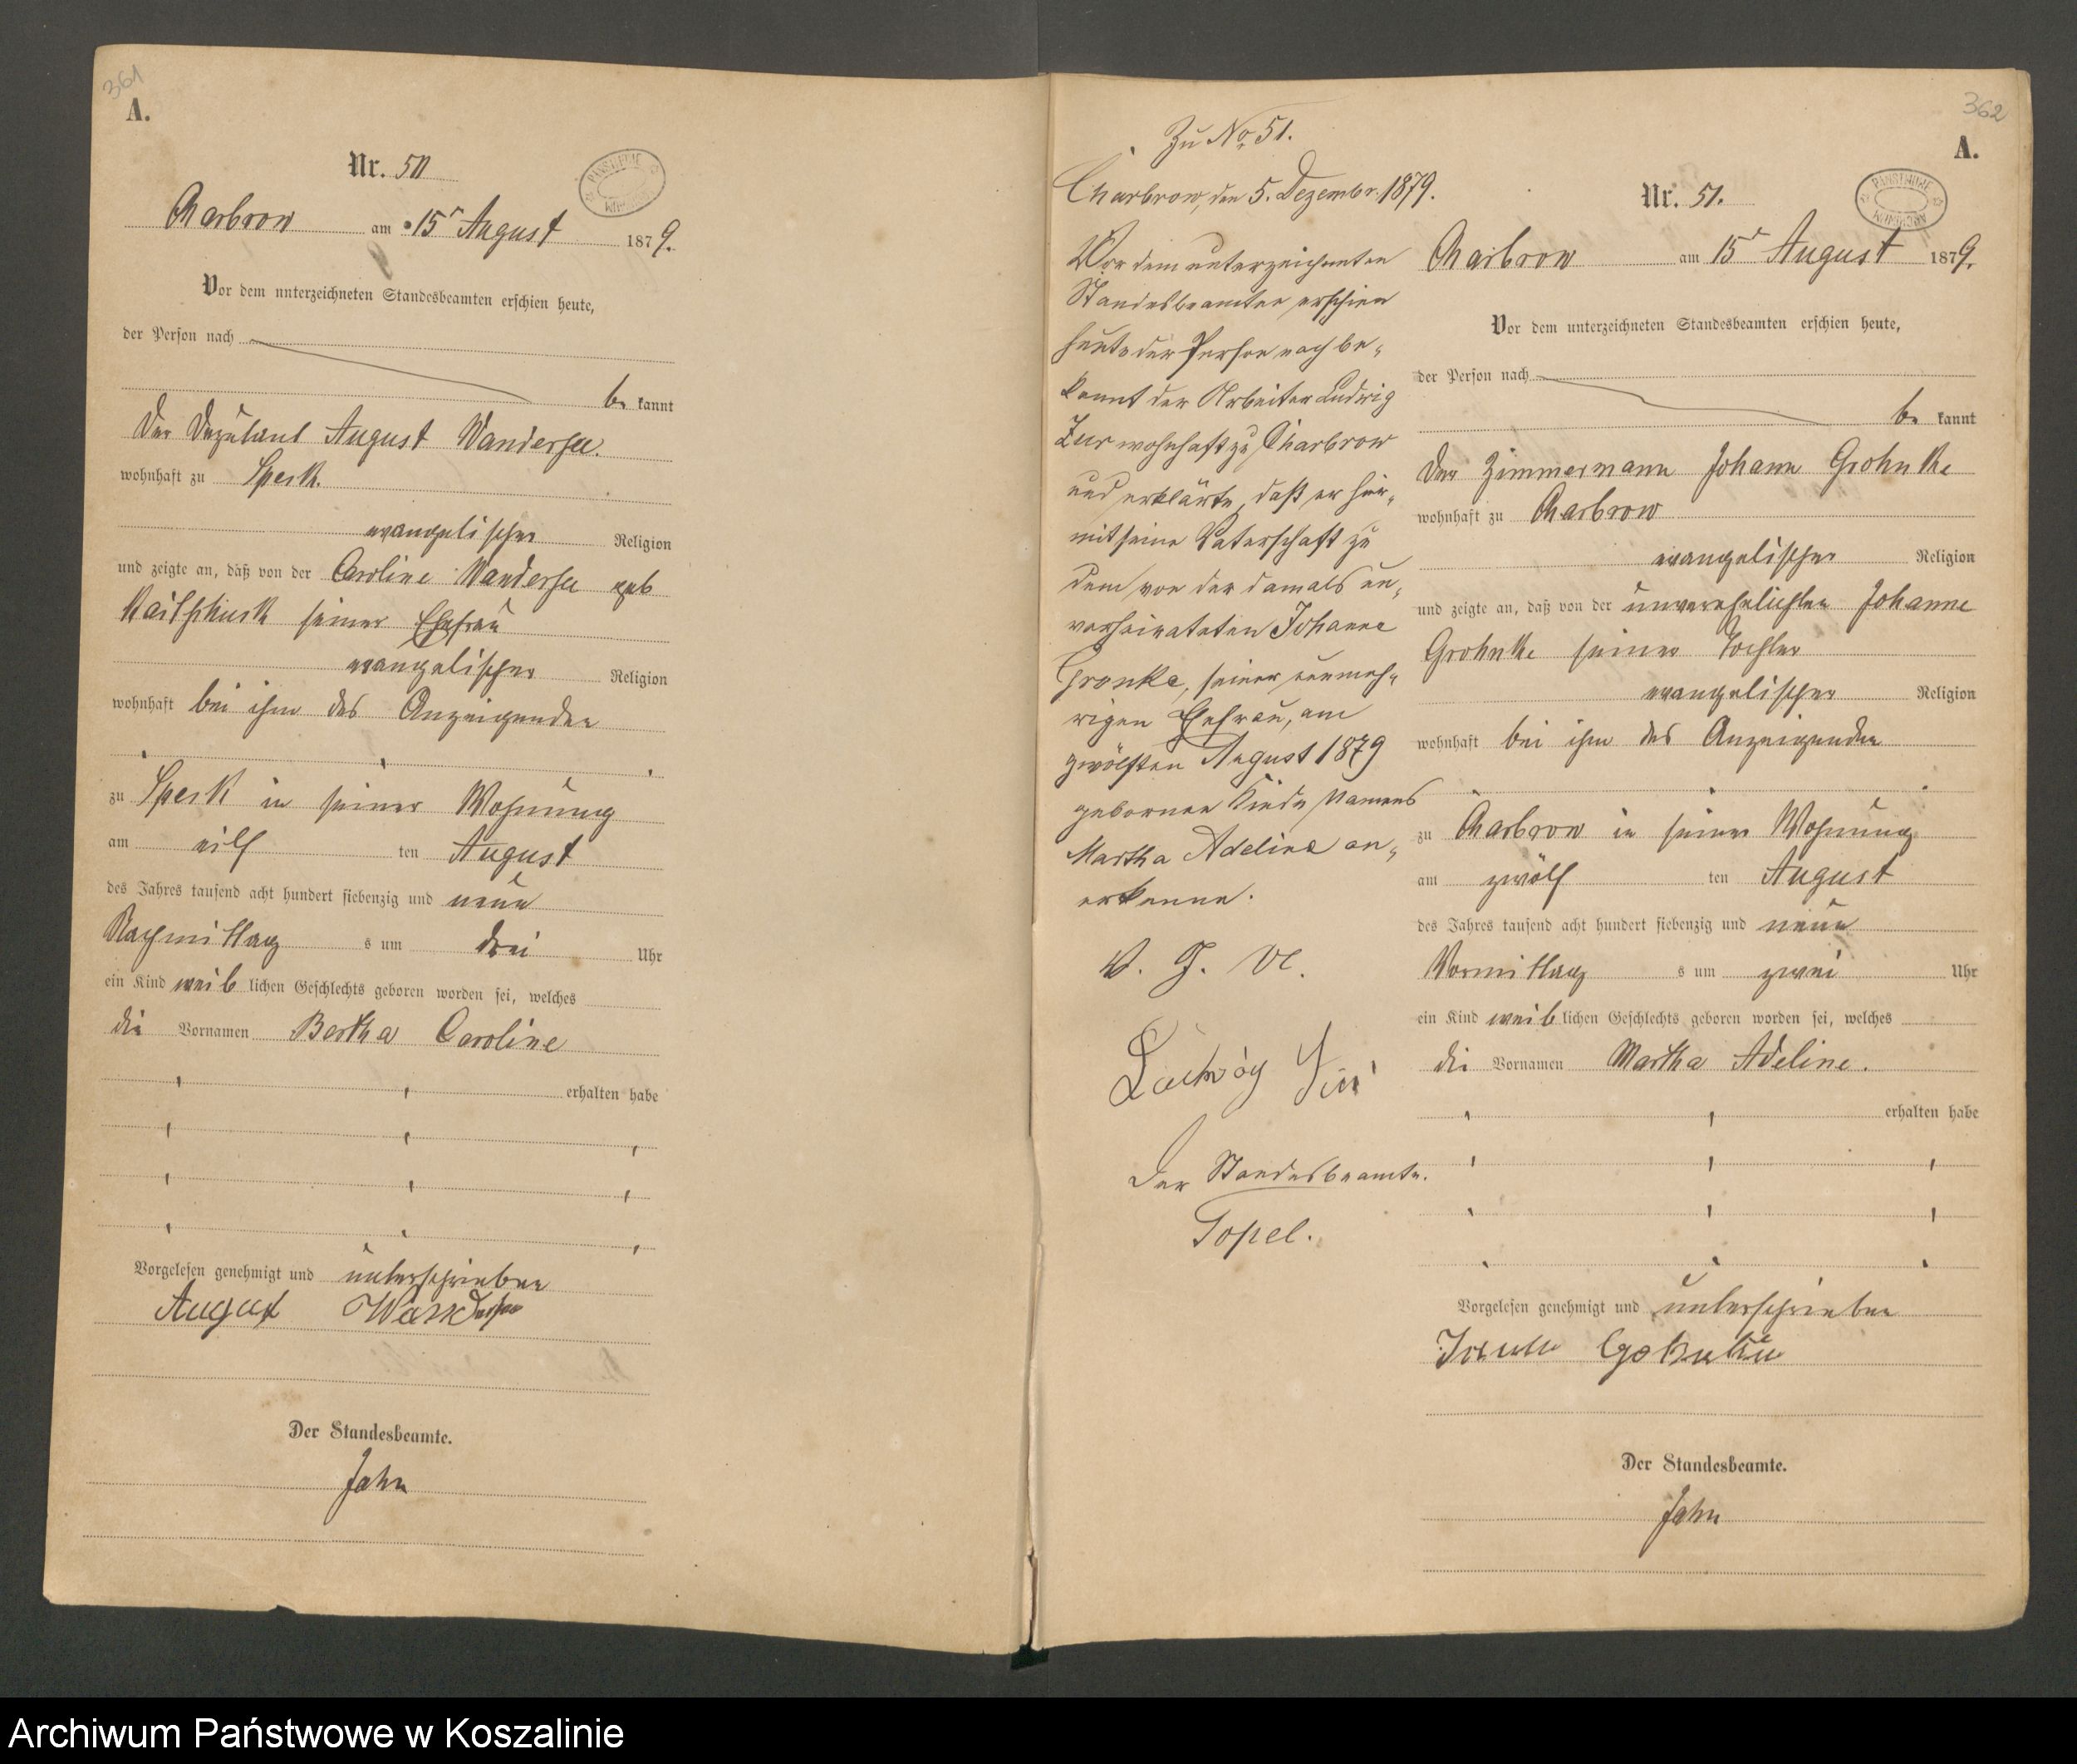 361
A.
Nr. 50
Charbrow am 15ᵗ August 1879.
Vor dem unterzeichneten Standesbeamten erschien heute,
der Person nach
be kannt
Der Deputant August Wandersee.
wohnhaft zu Speck.
evangelischer Religion
und zeigte an, daß von der Caroline Wandersee geb
seiner Ehefrau
evangelischer Religion
wohnhaft bei ihm des Anzeigenden
zu Speck in seiner Wohnung
am eilf ten August
des Jahres tausend acht hundert siebenzig und neun
Nachmittag s um drei Uhr
ein Kind weib lichen Geschlechts geboren worden sei, welches
die Vornamen Bertha Caroline
erhalten habe
Vorgelesen genehmigt und unterschrieben
August Wandersee
Der Standesbeamte.
Jahn
Zu No 51.
Charbrow, den 5. Dezembr. 1879.
Vor dem unterzeichneten
Standesbeamten erschien
heute der Person nach be-
kannt der Arbeiter Ludwig
wohnhaft zu Charbrow
und erklärte, daß er hier-
mit seine Vaterschaft zu
dem von der damals un-
verheirateten Johanne
Gronke, seiner nunmeh-
rigen Ehefrau, am
zwölften August 1879
gebornen Kinde Namens
Martha Adeline an-
erkenne.
V. G. U.
Ludwig
Der Standesbeamte.
Topel.
362
A.
Nr. 51.
Charbrow am 15ᵗ August 1879.
Vor dem unterzeichneten Standesbeamten erschien heute,
der Person nach
be kannt
Der Zimmermann Johann Grohnke
wohnhaft zu Charbrow
evangelischer Religion
und zeigte an, daß von der unverehelichten Johanne
Grohnke seiner Tochter
evangelischer Religion
wohnhaft bei ihm des Anzeigenden
zu Charbrow in seiner Wohnung
am zwölf ten August
des Jahres tausend acht hundert siebenzig und neun
Vormittag s um zwei Uhr
ein Kind weib lichen Geschlechts geboren worden sei, welches
die Vornamen Martha Adeline.
erhalten habe
Vorgelesen genehmigt und unterschrieben
Der Standesbeamte.
Jahn
Archiwum Państwowe w Koszalinie